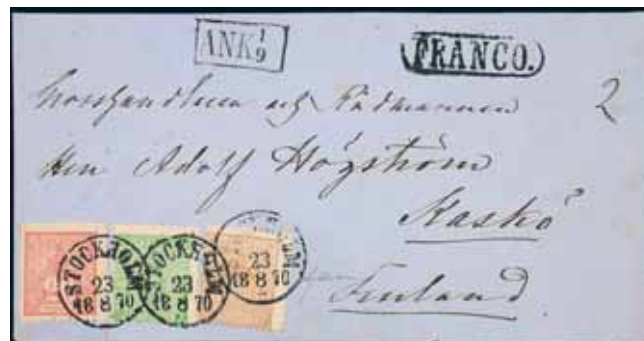 ANK 1/9
FRANCO.
Grosshandlaren och Rådmannen
2
Herr Adolf Högström
Kaskö
Finland
STOCKHOLM
23
18 8 70
STOCKHOLM
23
18 8 70
23
18 8 70